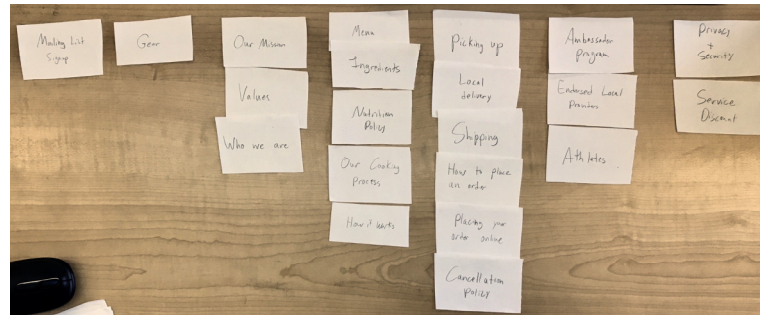 Mailing List
Signup
Gear
Our Mission
Values
Who we are
Menu
Ingredients
Nutrition
Policy
Our Cooking
Process
How it works
Picking up
Local
delivery
Shipping
How to place
an order
Placing your
order online
Cancellation
policy
Ambassador
program
Endorsed Local
Providers
Athletes
Privacy
+
Security
Service
Discount